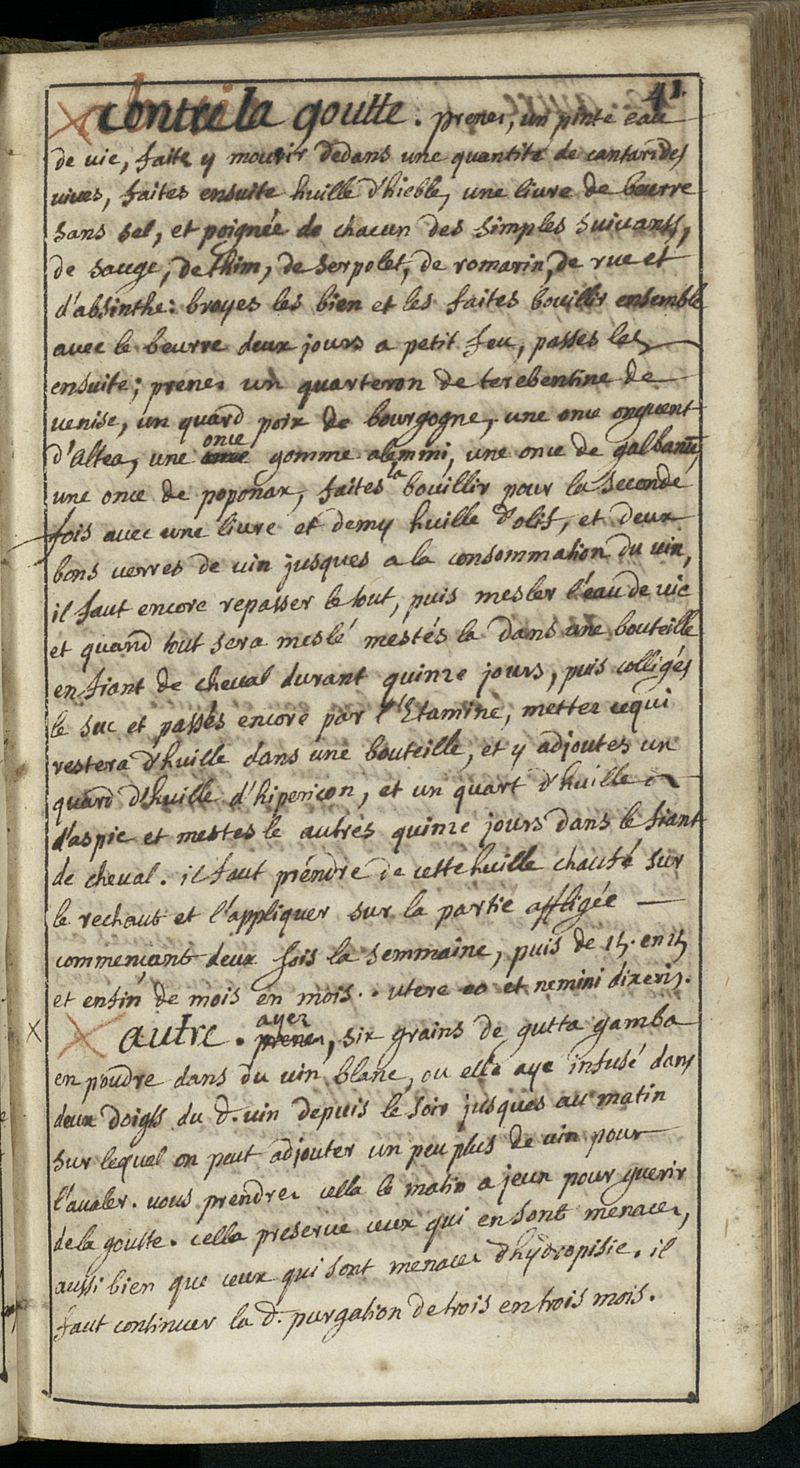 41.
contre la goutte. prenes, un pinte eau
de vie, faite y mourir dedans une quantite de cantarides
vives, faites ensuite huille d'hieble, une livre de beurre
sans sel, et poignée de chacun des simples suivants,
de sauge, de thim, de serpolet, de romarin, de rue et
d'absinthe: broyes les bien et les faites bouillir ensemble
avec le beurre deux jours a petit feu, passes les
ensuite; prenes un quarteron de terebentine de
venise, un quard poix de bourgogne, une once onguent
d'altea, une once gomme alemmi, une once de galbanū,
une once de poponax, faites la bouillir pour la seconde
fois avec une livre et demy huille d'olif, et deux
bons verres de vin jusques a la consommation du vin,
il faut encore repasser le tout, puis mesler l'eau de vie
et quand tout sera meslé mettés la dans une bouteille
en fiant de cheval durant quinze jours, puis colligés
le suc et passés encore par l'Etamine, mettez ce qui
restera d'huille dans une bouteille, et y adjoutes un
quard d'huille d'hipericon, et un quart d'huille
d'aspic et mettes le autres quinze jours dans le fiant
de cheval. il faut préndre de cette huille chaufé sur
le rechaut et l'appliquer sur la partie affligée —
commençant deux fois la semmaine, puis de 15. en 15
et enfin de mois en mois.. utere eo et nemini dixeris.
x autre. ayez, six grains de gutta gamba
en poudre dans du vin blanc, ou elle aye infusé dans
deux doigts du d. vin depuis le soir jusques au matin
sur lequel on peut adjouter un peu plus de vin pour
l'avaler. vous prendrez cella le matin a jeun pour guerir
de la goutte. cella preserve ceux qui en sont menacez,
aussi bien que ceux qui sont menacez d'hydropisie. il
faut continuer la d. purgation de trois en trois mois.